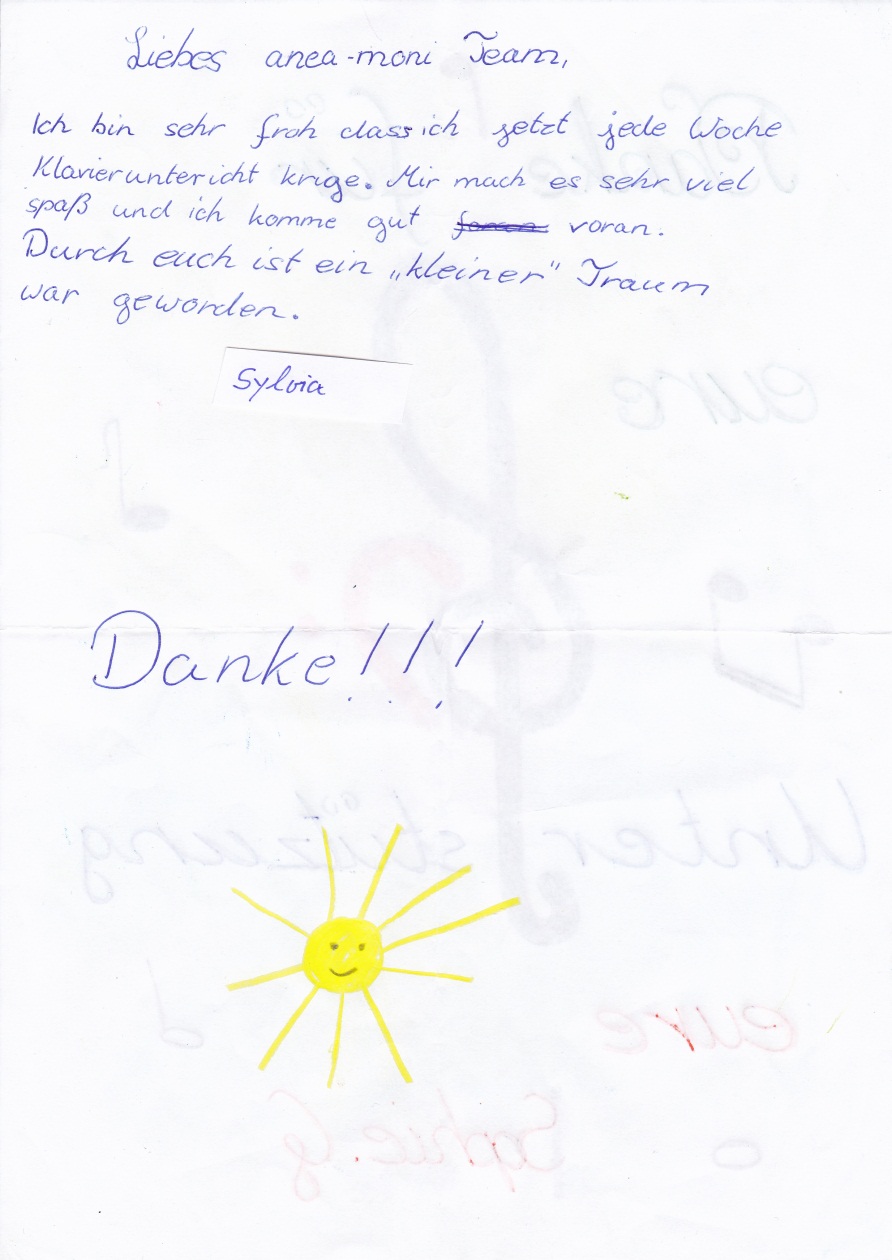 Liebes anea-moni Team,
Ich bin sehr froh dass ich jetzt jede Woche
Klavieruntericht krige. Mir mach es sehr viel
spaß und ich komme gut voran.
Durch euch ist ein „kleiner" Traum
war geworden.
Sylvia
Danke!!!
eure
Unterstützung
eure